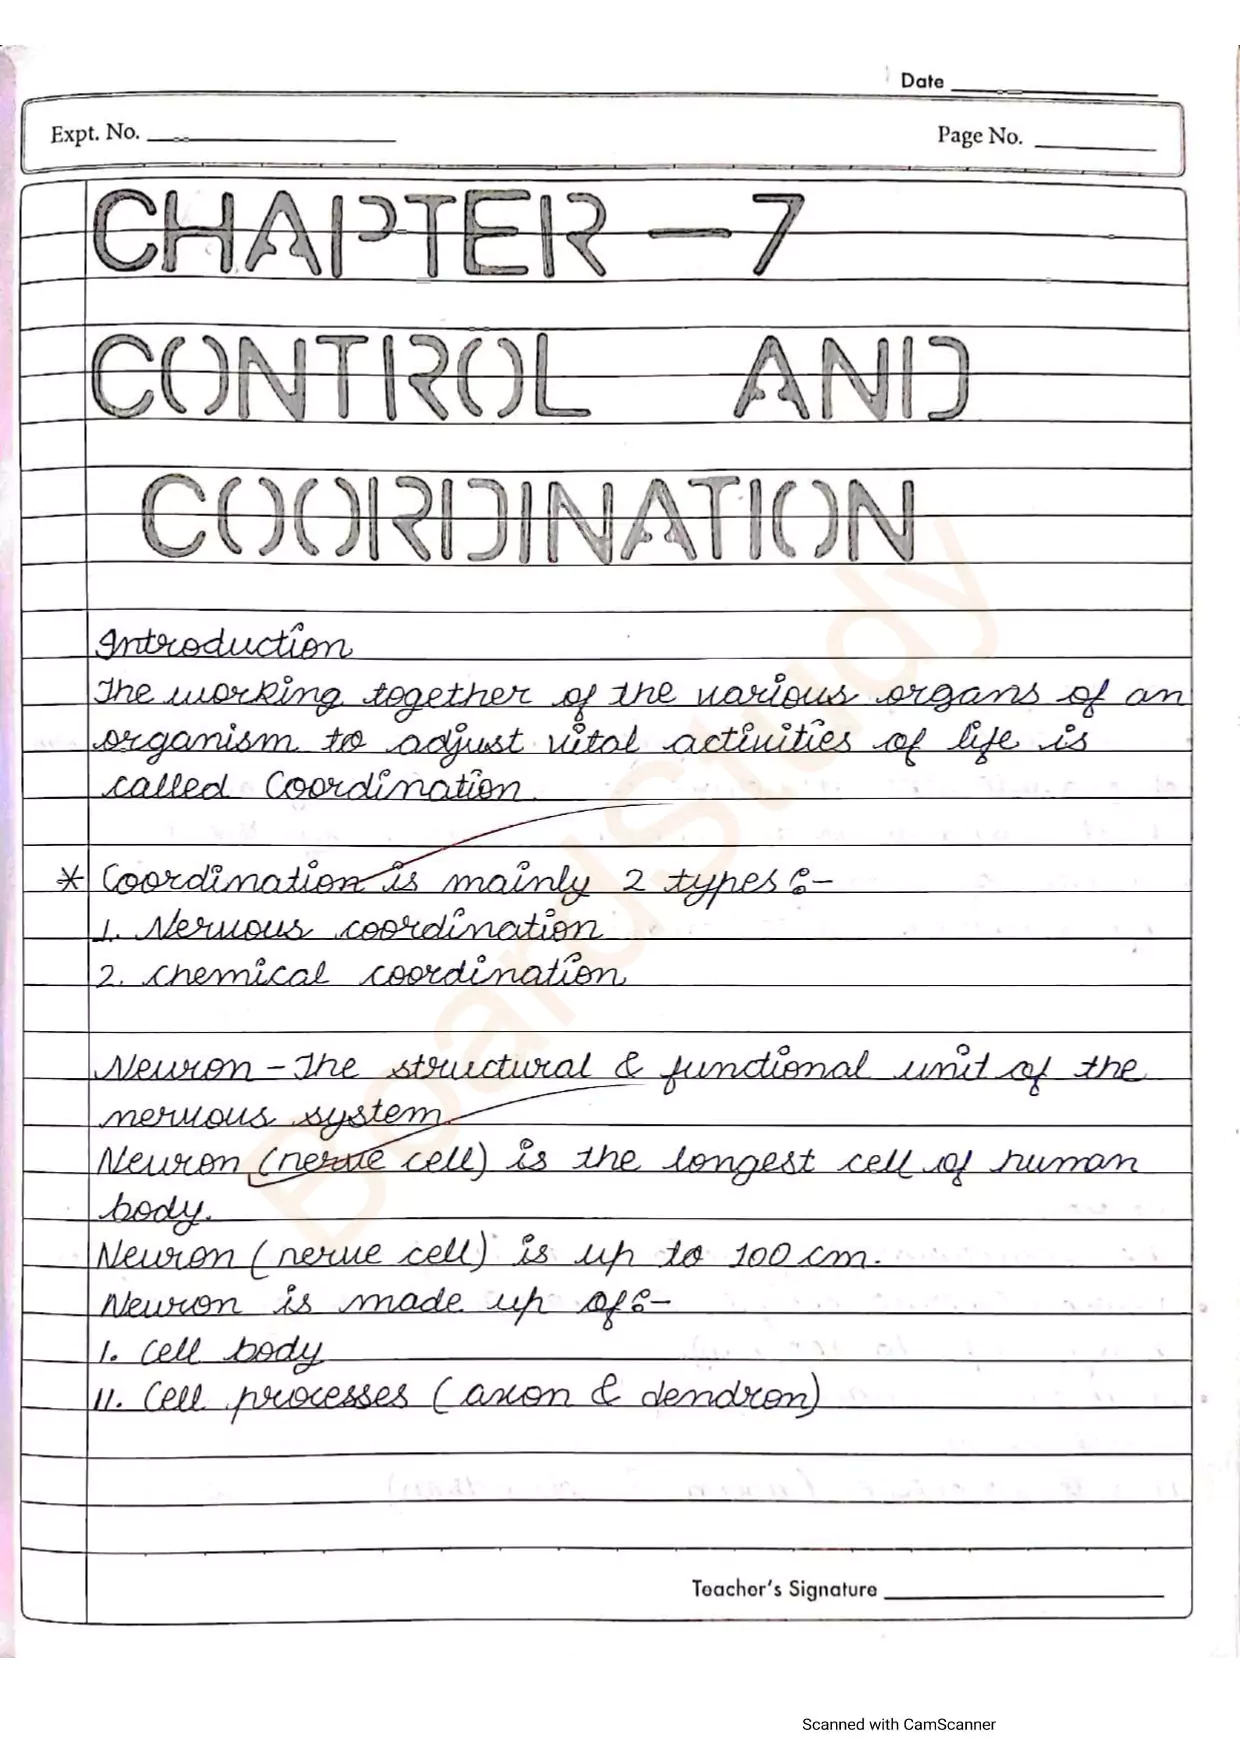 Date
Expt. No.
Page No.
CHAPTER - 7
CONTROL AND
COORDINATION
Introduction
The working together of the various organs of an
organism to adjust vital activities of life is
called Coordination.
* Coordination is mainly 2 types :-
1. Nervous coordination
2. Chemical coordination
Neuron - The structural & functional unit of the
nervous system.
Neuron (nerve cell) is the longest cell of human
body.
Neuron (nerve cell) is up to 100 cm.
Neuron is made up of :-
I. Cell body
II. Cell processes (axon & dendron)
Teacher's Signature
BoardStudy
Scanned with CamScanner